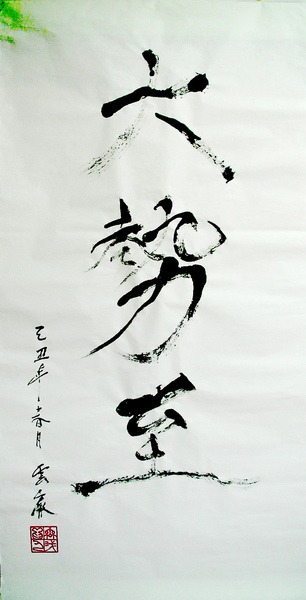 大勢至
己丑年春月雲